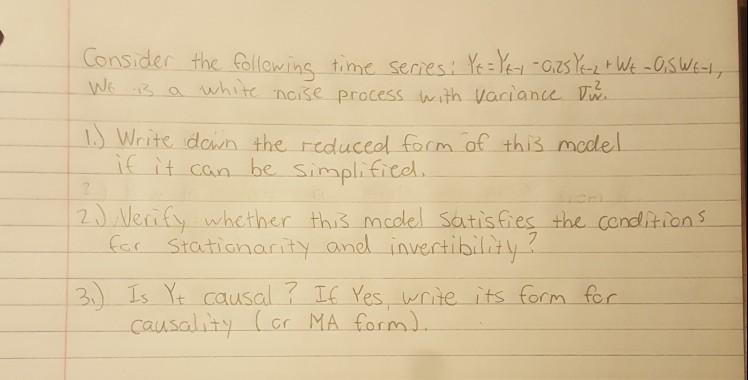 Consider the following time series: Yt = Yt-1 - 0.25 Yt-2 + Wt - 0.5 Wt-1,
Wt is a white noise process with variance σ²w.
1.) Write down the reduced form of this model
if it can be simplified.
2.) Verify whether this model satisfies the conditions
for stationarity and invertibility?
3.) Is Yt causal? If Yes, write its form for
causality (or MA form).